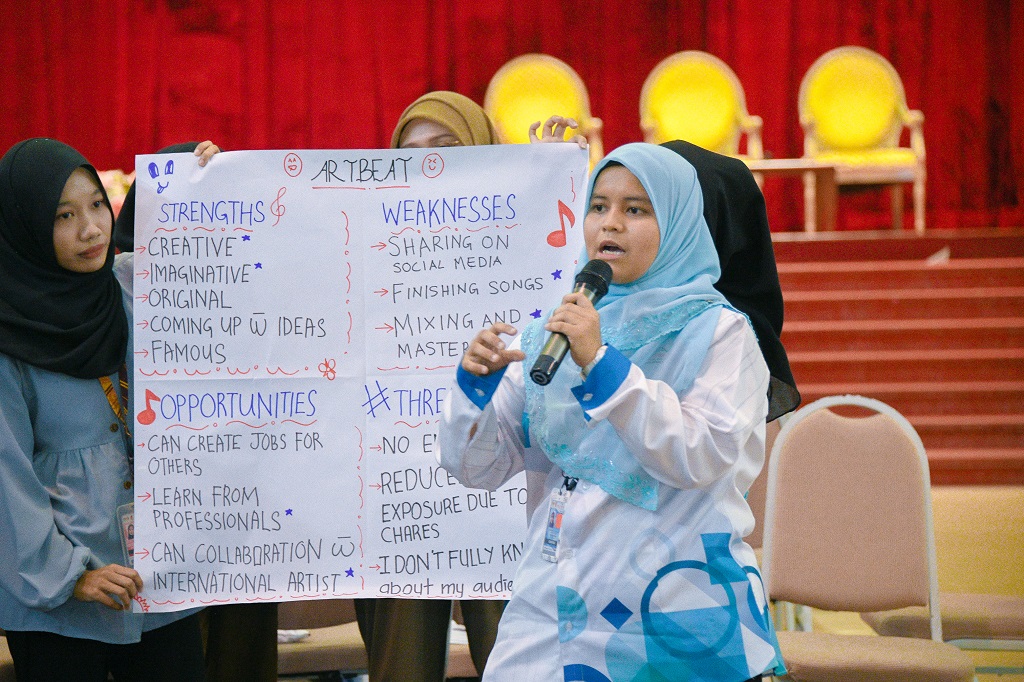 ARTBEAT
STRENGTHS
→CREATIVE*
→IMAGINATIVE*
→ORIGINAL
→COMING UP w̄ IDEAS
→FAMOUS
WEAKNESSES
→SHARING ON
SOCIAL MEDIA
→FINISHING SONGS*
→MIXING AND*
OPPORTUNITIES
→CAN CREATE JOBS FOR
OTHERS
→LEARN FROM
PROFESSIONALS*
→CAN COLLABORATION w̄
INTERNATIONAL ARTIST*
#
→NO
→
EXPOSURE DUE TO
CHARES
→I DON'T FULLY
about my